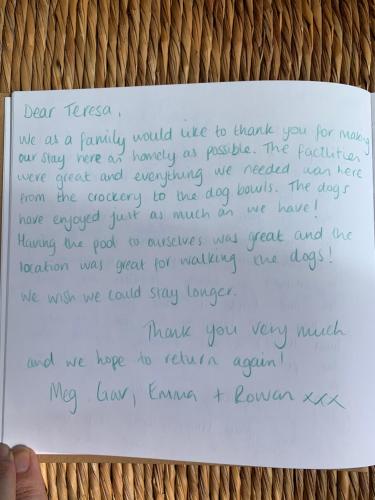 Dear Teresa,
We as a family would like to thank you for making
our stay here as homely as possible. The facilities
were great and everything we needed was here
from the crockery to the dog bowls. The dogs
have enjoyed just as much as we have!
Having the pool to ourselves was great and the
location was great for walking the dogs!
We wish we could stay longer.
Thank you very much
and we hope to return again!
Meg, Gav, Emma + Rowan xxx